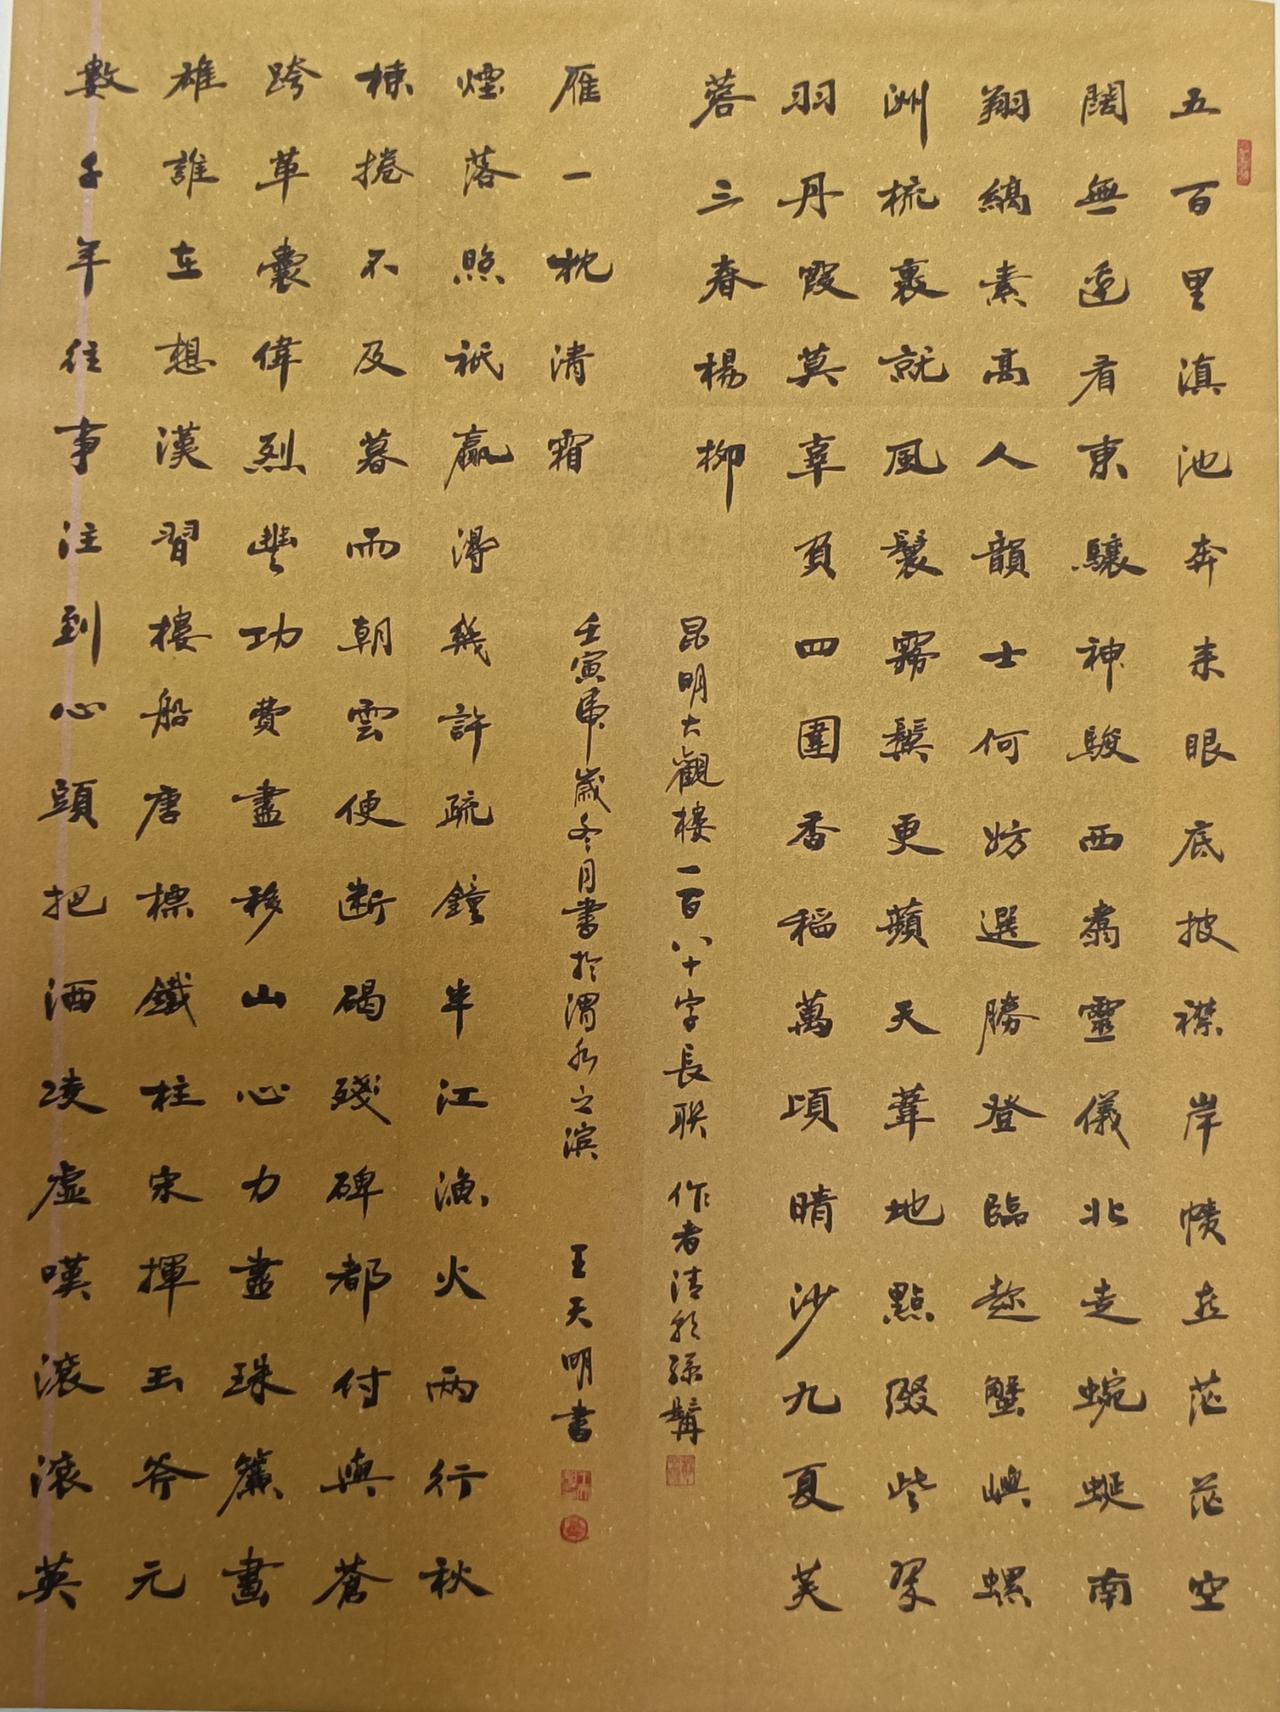 五百里滇池奔來眼底披襟岸幘喜茫茫空
闊無邊看東驤神駿西翥靈儀北走蜿蜒南
翔縞素高人韻士何妨選勝登臨趁蟹嶼螺
洲梳裹就風鬟霧鬢更蘋天葦地點綴些翠
羽丹霞莫辜負四圍香稻萬頃晴沙九夏芙
蓉三春楊柳
昆明大觀樓一百八十字長联 作者清朝孫髯
數千年往事注到心頭把酒凌虛嘆滾滾英
雄誰在想漢習樓船唐標鐵柱宋揮玉斧元
跨革囊偉烈豐功費盡移山心力盡珠簾畫
棟捲不及暮雨朝雲便断碣殘碑都付與蒼
煙落照祇贏得幾許疏鐘半江漁火兩行秋
雁一枕清霜
壬寅虎歲冬月書於渭水之滨 王天明書